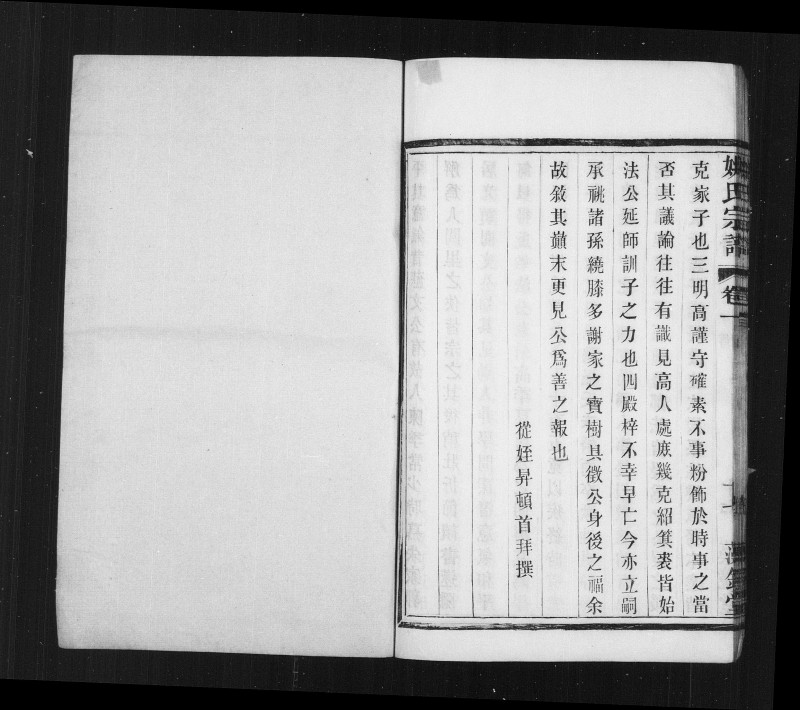 克家子也三明高謹守確素不事粉飾於時事之當
否其議論往往有識見高人處庶幾克紹箕裘皆始
法公延師訓子之力也四殿梓不幸早亡今亦立嗣
承祧諸孫繞膝多謝家之寶樹具徵公身後之福余
故敘其巔末更見公爲善之報也
從姪昇頓首拜撰
氏宗譜
卷一